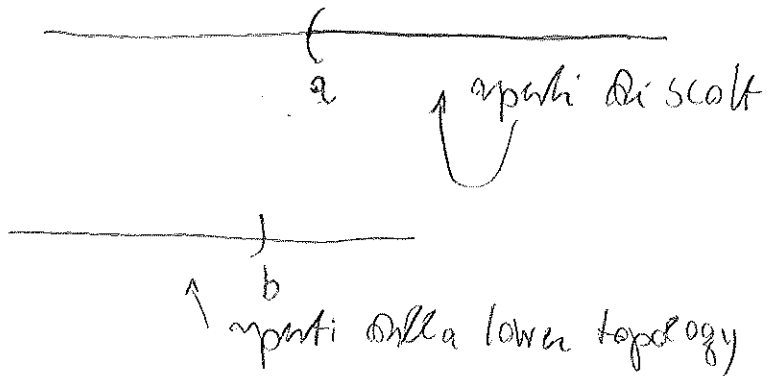 (
a
aperti di scott
)
b
aperti della lower topology